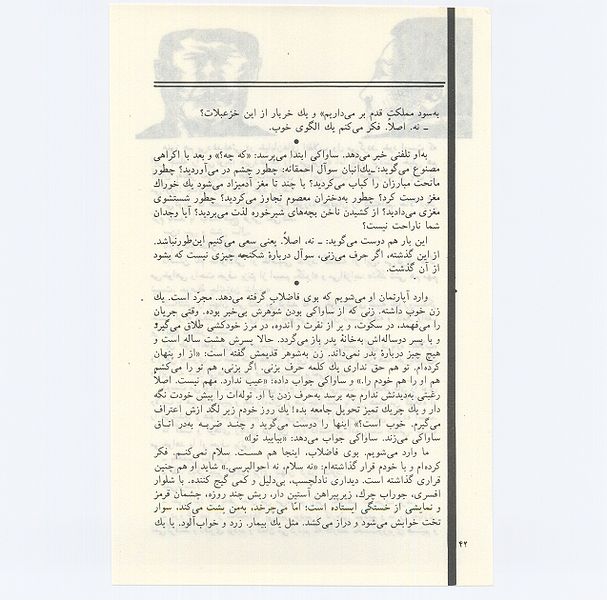 به‌سود مملکت قدم بر می‌داریم» و یك خربار از این خزعبلات؟
ـ نه. اصلاً. فکر می‌کنم یك الگوی خوب.
•
به‌او تلفنی خبر می‌دهد. ساواکی ابتدا می‌پرسد: «که چه؟» و بعد با اکراهی
مصنوع می‌گوید: ـ یك‌انبان سوآل احمقانه: چطور چشم در می‌آوردید؟ چطور
ماتحت مبارزان را کباب می‌کردید؟ با چند تا مغز آدمیزاد می‌شود یك خوراك
مغز درست کرد؟ چطور به‌دختران معصوم تجاوز می‌کردید؟ چطور شستشوی
مغزی می‌دادید؟ از کشیدن ناخن بچه‌های شیرخوره لذت می‌بردید؟ آیا وجدان
شما ناراحت نیست؟
این بار هم دوست می‌گوید: ـ نه، اصلاً. یعنی سعی می‌کنیم این‌طورنباشد.
از این گذشته، اگر حرف می‌زنی، سوآل دربارهٔ شکنجه چیزی نیست که بشود
از آن گذشت.
•
وارد آپارتمان او می‌شویم که بوی فاضلاب گرفته می‌دهد. مجرّد است. یك
زن خوب داشته. زنی که از ساواکی بودن شوهرش بی‌خبر بوده. وقتی جریان
را می‌فهمد، در سکوت، و پر از نفرت و اندوه، در مرز خودکشی طلاق می‌گیرد
و با پسر دوساله‌اش به‌خانهٔ پدر باز می‌گردد. حالا پسرش هشت ساله است و
هیچ چیز دربارهٔ پدر نمی‌داند. زن به‌شوهر قدیمش گفته است: «از او پنهان
کرده‌ام. تو هم حق نداری یك کلمه حرف بزنی. اگر بزنی، هم تو را می‌کشم
هم او را هم خودم را.» و ساواکی جواب داده: «عیب ندارد. مهم نیست. اصلاً
رغبتی به‌دیدنش ندارم چه برسد به‌حرف زدن با او. توله‌ات را پیش خودت نگه
دار و یك چریك تمیز تحویل جامعه بده! یك روز خودم زیر لگد ازش اعتراف
می‌گیرم. خوب است؟» اینها را دوست می‌گوید و چنـد ضربـه به‌در اتـاق
ساواکی می‌زند. ساواکی جواب می‌دهد: «بیایید تو!»
ما وارد می‌شویم. بوی فاضلاب، اینجا هم هسـت. سلام نمی‌کنـم. فکر
کرده‌ام و با خودم قرار گذاشته‌ام: «نه سلام، نه احوالپرسی.» شاید او هم چنین
قراری گذاشته است. دیداری نادلچسب، بی‌دلیل و کمی گیج کننده. با شلوار
افسری، جوراب چرك، زیرپیراهن آستین دار، ریش چند روزه، چشمان قرمز
و نمایشی از خستگی ایستاده است؛ امّا می‌چرخد، به‌من پشت می‌کند، سوار
تخت خوابش می‌شود و دراز می‌کشد. مثل یك بیمار. زرد و خواب‌آلود. با یك
۴۲